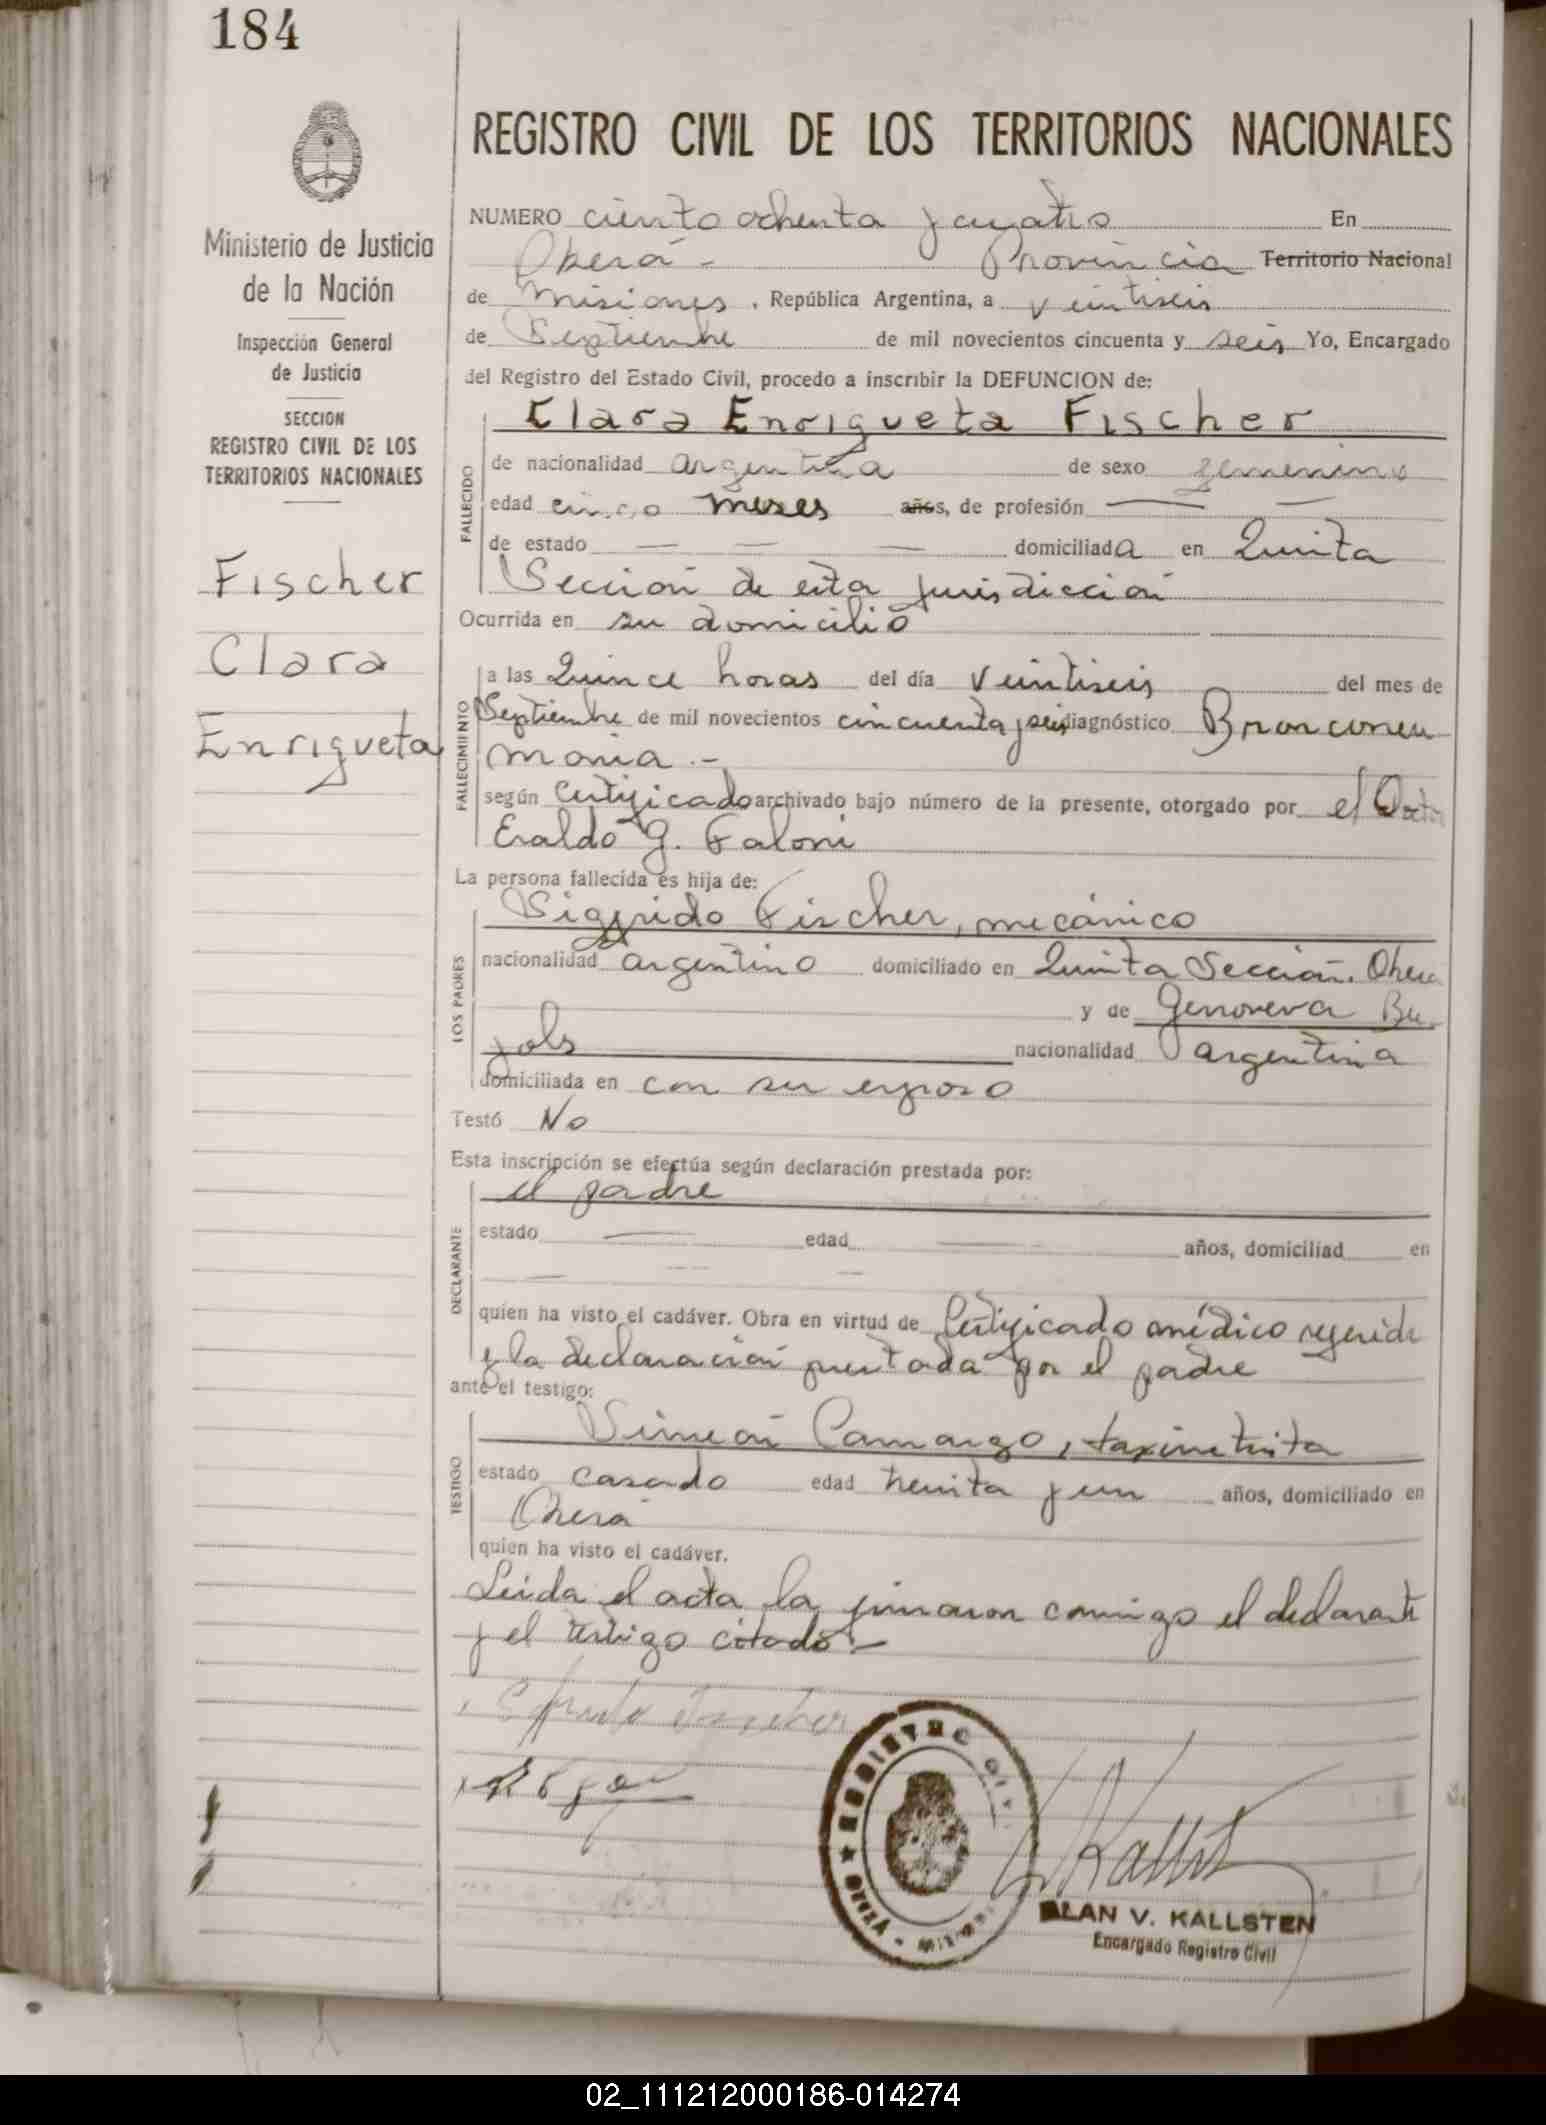 184
REGISTRO CIVIL DE LOS TERRITORIOS NACIONALES
Ministerio de Justicia
de la Nación
Inspección General
de Justicia
SECCION
REGISTRO CIVIL DE LOS
TERRITORIOS NACIONALES
Fischer
Clara
Enriqueta
NUMERO ciento ochenta y cuatro En
Oberá - Provincia Territorio Nacional
de Misiones, República Argentina, a veintiseis
de Septiembre de mil novecientos cincuenta y seis Yo, Encargado
del Registro del Estado Civil, procedo a inscribir la DEFUNCION de:
Clara Enriqueta Fischer
FALLECIDO
de nacionalidad argentina de sexo femenino
edad cinco meses años, de profesión
de estado domiciliada en Quinta
Sección de esta jurisdicción
Ocurrida en su domicilio
FALLECIMIENTO
a las Quince horas del día veintiseis del mes de
Septiembre de mil novecientos cincuenta y seis diagnóstico Bronconeu
monia.-
según Certificado archivado bajo número de la presente, otorgado por el Doctor
Eraldo G. Faloni
La persona fallecida es hija de:
LOS PADRES
Sigfrido Fischer, mecánico
nacionalidad argentino domiciliado en Quinta Sección. Oberá
y de Genoveva Bu-
jols nacionalidad argentina
domiciliada en con su esposo
Testó No
Esta inscripción se efectúa según declaración prestada por:
DECLARANTE
el padre
estado edad años, domiciliad en
quien ha visto el cadáver. Obra en virtud de Certificado médico referido
y la declaración prestada por el padre
ante el testigo:
TESTIGO
Simeón Camargo, taximetrista
estado casado edad treinta y un años, domiciliado en
Oberá
quien ha visto el cadáver.
Leida el acta la firmaron conmigo el declarante
y el testigo citado.-
REGISTRO CIVIL
OBERA - MISIONES
Kallst
ALAN V. KALLSTEN
Encargado Registro Civil
02_111212000186-014274